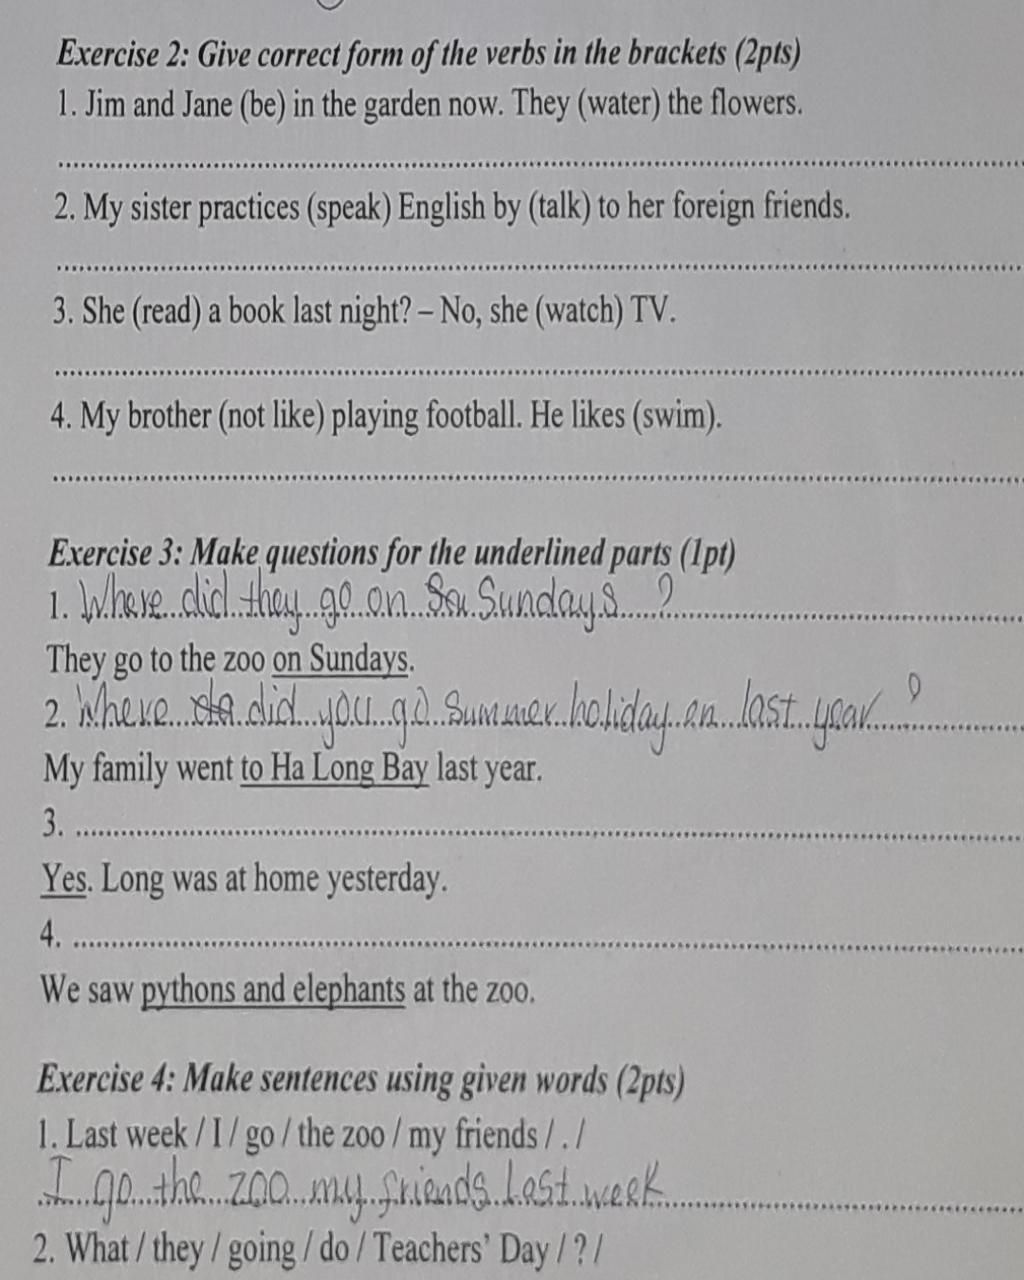 Exercise 2: Give correct form of the verbs in the brackets (2pts)
1. Jim and Jane (be) in the garden now. They (water) the flowers.
2. My sister practices (speak) English by (talk) to her foreign friends.
3. She (read) a book last night? – No, she (watch) TV.
4. My brother (not like) playing football. He likes (swim).
Exercise 3: Make questions for the underlined parts (1pt)
1. Where did they go on Sundays ?
They go to the zoo on Sundays.
2. Where did you go summer holiday on last year ?
My family went to Ha Long Bay last year.
3.
Yes. Long was at home yesterday.
4.
We saw pythons and elephants at the zoo.
Exercise 4: Make sentences using given words (2pts)
1. Last week / I / go / the zoo / my friends / . /
I go the zoo my friends Last week
2. What / they / going / do / Teachers' Day / ? /